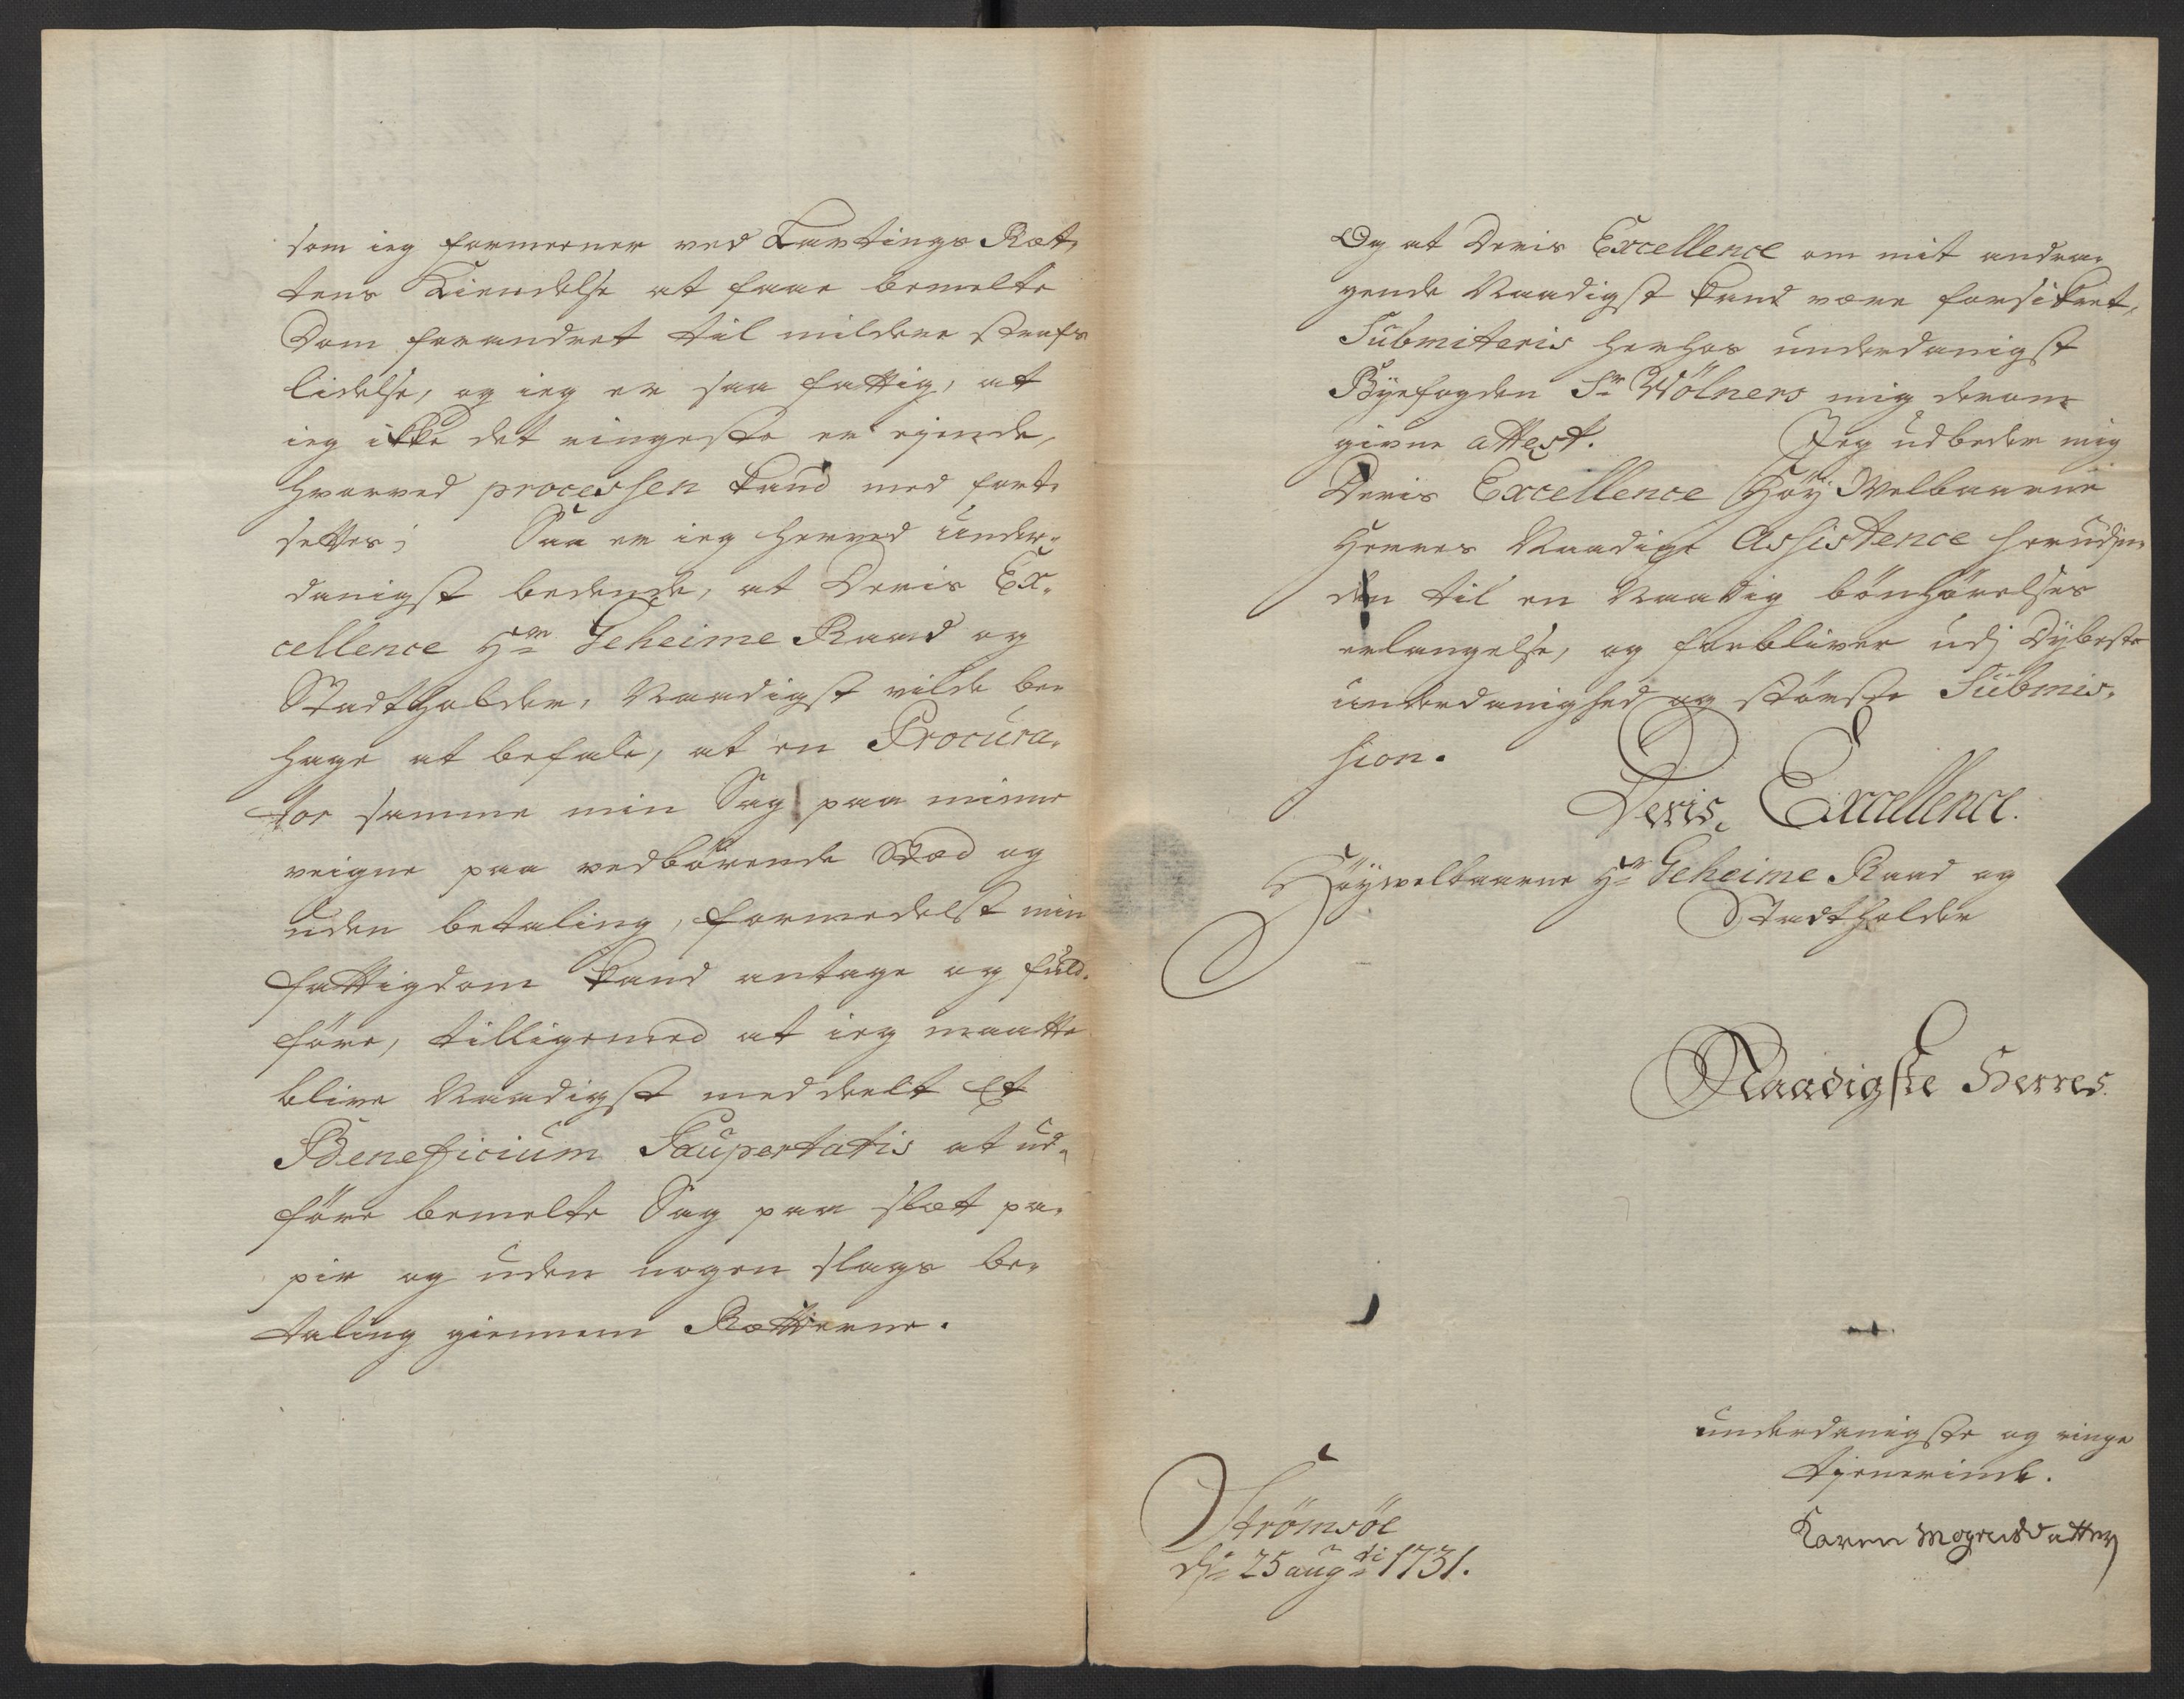 som ieg formeener ved Lavtings Ræt,
tens Kiendelse at faae bemelte
Dom forandret til mildere Strafs
lidelse, og ieg er saa fattig, at
ieg ikke det ringeste er ejende,
hvorved processen kand med fort,
settes; Saa er ieg herved under,
danigst bedende, at Deris Ex,
cellence Hr Geheime Raad og
Stadtholder, Naadigst vilde be,
hage at befale, at en Procura,
tor samme min Sag paa minne
veigne paa vedbörende Stæd og
uden betaling, formedelst min
fattigdom kand antage og fuld,
före, tilligemed at ieg maatte
blive Naadigst meddeelt Et
Beneficium Paupertatis at ud,
före bemelte Sag paa slæt pa,
pir og uden nogen slags be,
taling giennem Rætterne.
Og at Deris Excellence om mit andra,
gende Naadigst kand være forsikret,
Submiteris herhos underdanigst
Byefogden Sr Wölners mig derom
givne attest. Jeg udbeder mig
Deris Excellence Höy Welbaarne
Herres Naadige Assistence herudjn,
den til en Naadig bönhörelses
erlangelse, og forbliver udj dybeste
underdanighed og störste Submis,
sion.
Deris Excellence.
Höywelbaarne Hr Geheime Raad og
Stadtholder
Naadigste Herres.
underdanigste og ringe
tjenerinde.
Karen Mogensdatter
Strömsöe
dn 25 augti 1731.